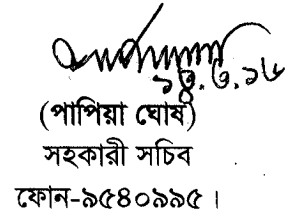 (পাপিয়া ঘোষ)
সহকারী সচিব
ফোন-৯৫৪০৯৯৫।